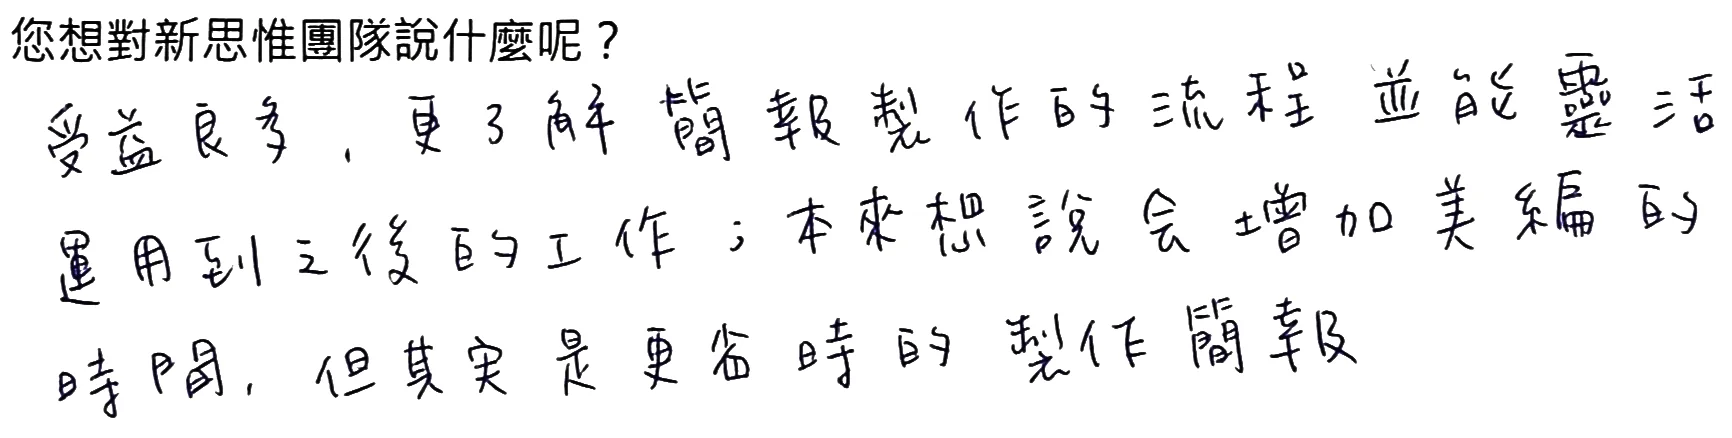 您想對新思惟團隊說什麼呢？
受益良多，更了解簡報製作的流程並能靈活
運用到之後的工作；本來想說会增加美編的
時間，但其实是更省時的製作簡報